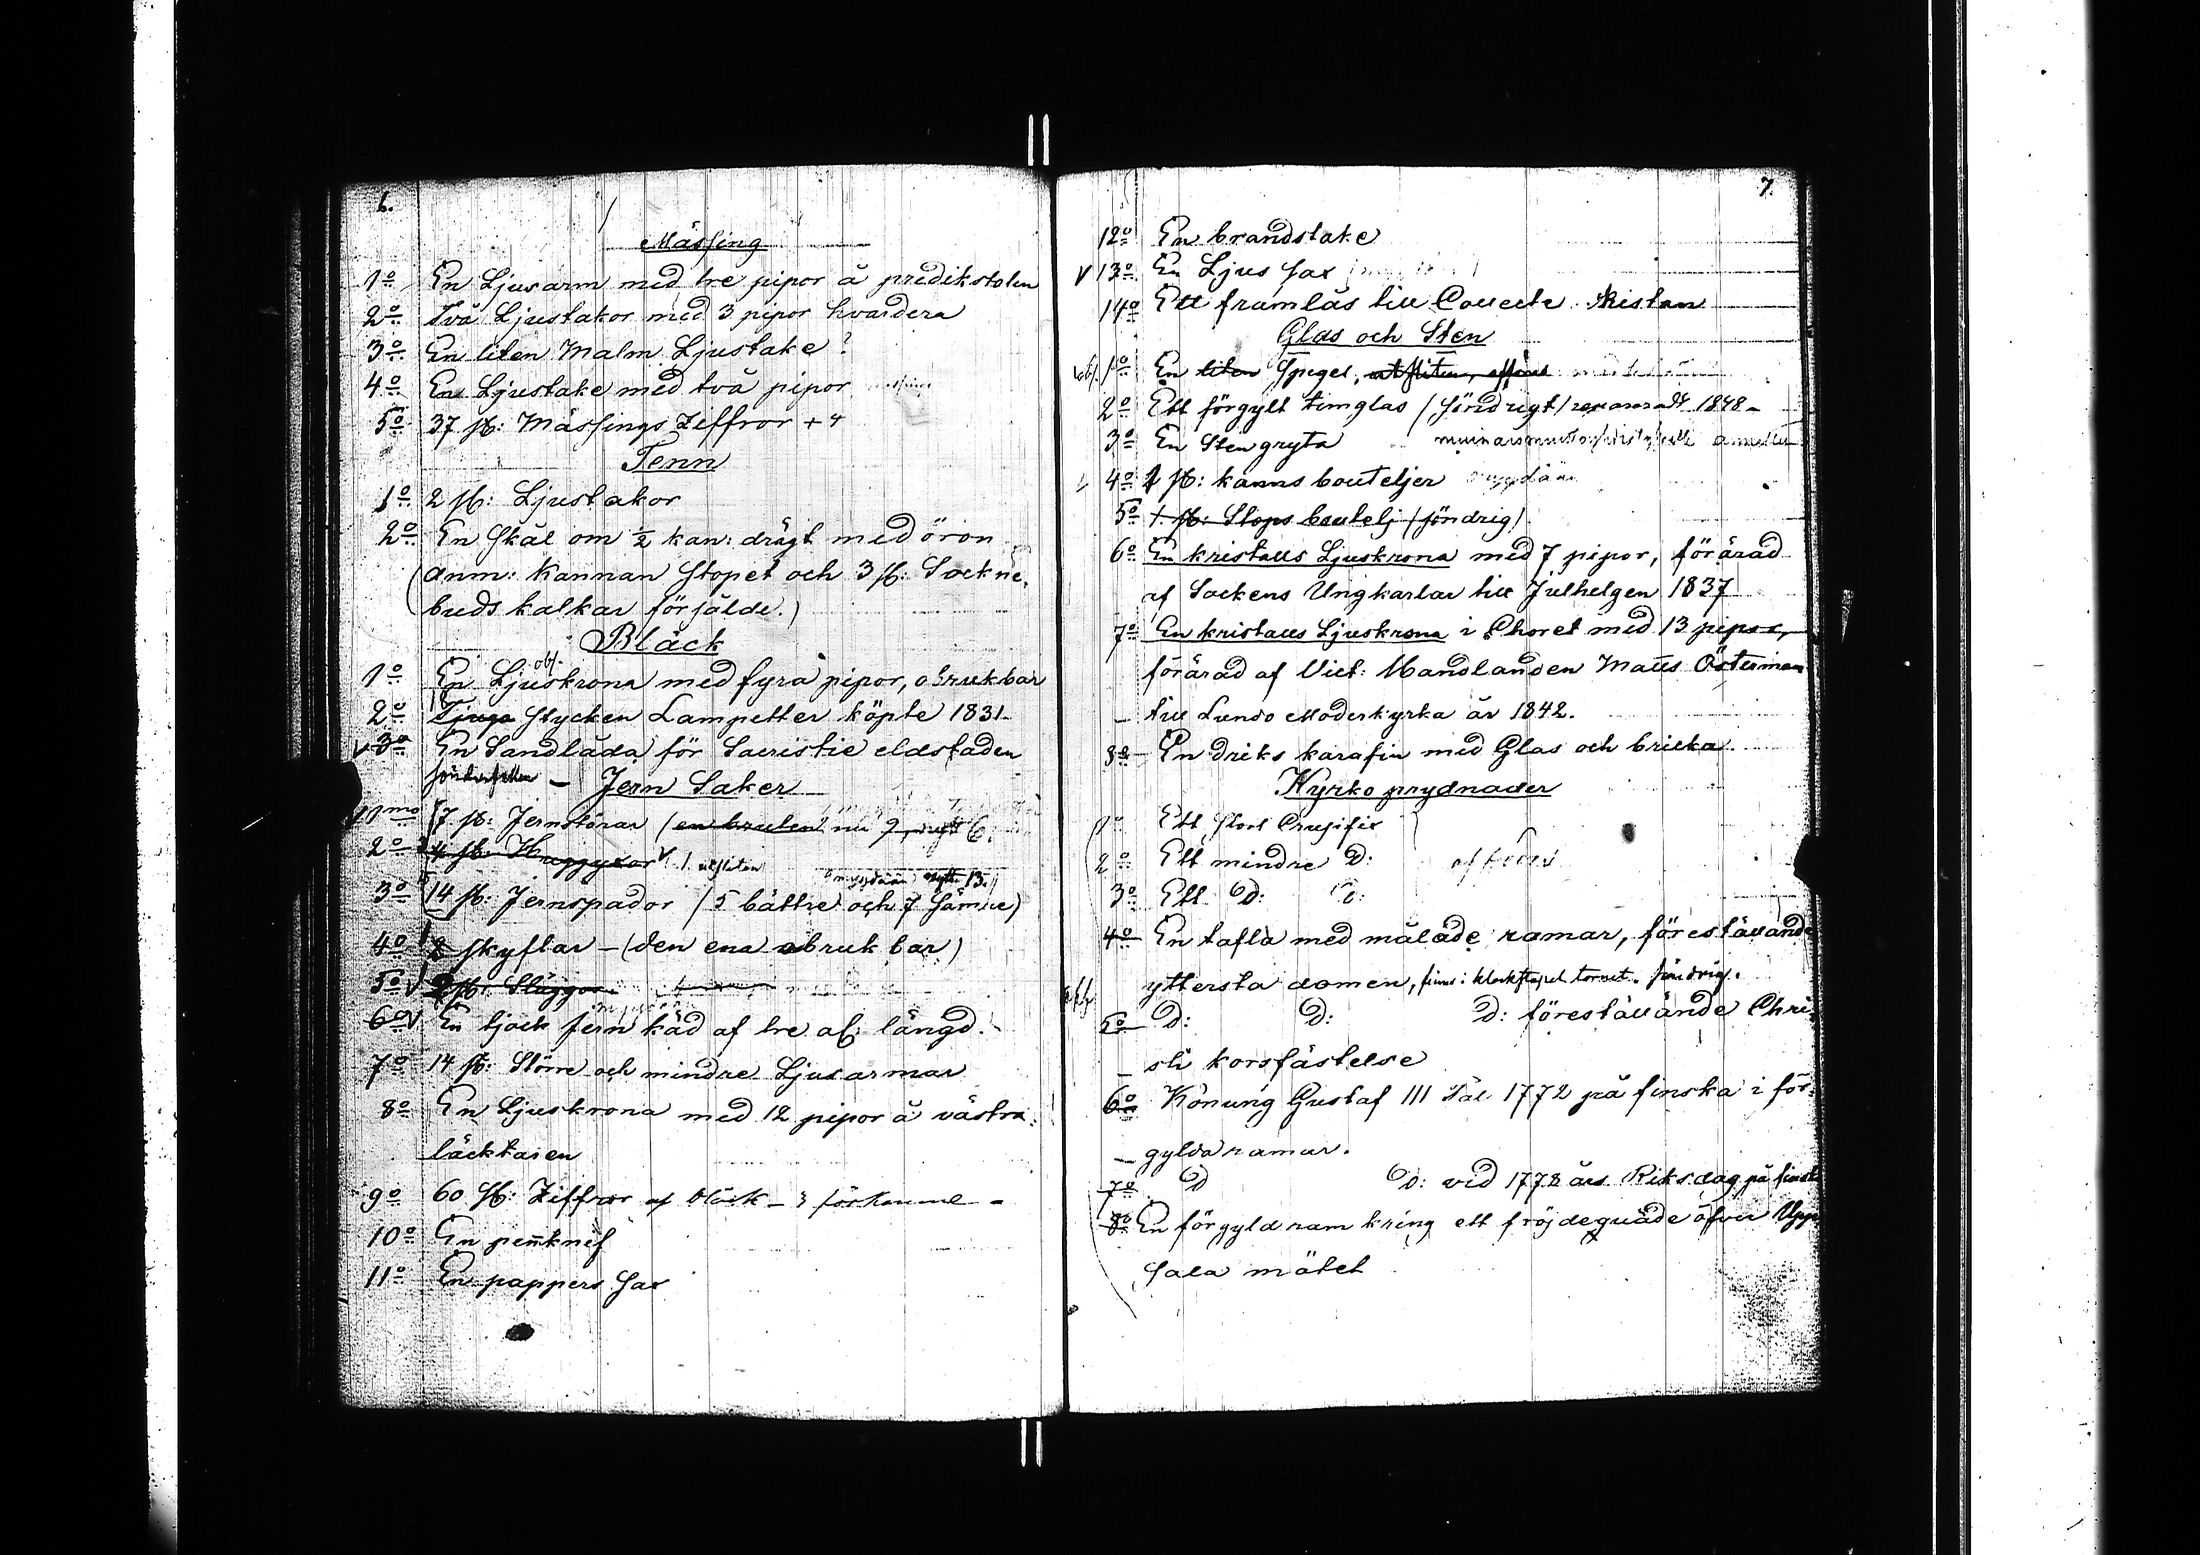 6.
Mässing
1o En Ljusarm med tre pipor å predikstolen
2o Två Ljustakor med 3 pipor hvardera
3o En liten Malm Ljustake?
4o En Ljustake med två pipor
5o 37 st: Mässings Ziffror + 4
Tenn
1o 2 st: Ljustakor
2o En Skål om ½ kan: drägt med öron
(Anm: Kannan Stopet och 3 st: Sockne-
buds kalkar försålde.)
Bläck
obs.
1o En Ljuskrona med fyra pipor, obrukbar
2o Tjugo stycken Lampetter köpte 1831
v 3o En Sandlåda för Sacristie eldstaden
Jern Saker
1mo 7 st: Jernstörar (en bruten) nu
2o 4 st: Huggyxor 1. utsliten
3o 14 st: Jernspador (5 bättre och 7 sämre)
4o 2 skyflar – (den ena obrukbar)
5o v 2 st: Släggor
6o v En tjock jern käd af tre al: längd.
7o 14 st: Större och mindre Ljusarmar
8o En Ljuskrona med 12 pipor å västra
läcktaren
9o 60 st: Ziffror af bläck – 3 förkomne –
10o En pennknif
11o En pappers sax
7.
12o En brandstake
v 13o En Ljus sax
14o Ett framlås till Collecte kistan
Glas och Sten
obs. 1o En liten Spegel, utsliten,
2o Ett förgylt timglas (söndrigt) repareradt 1848 –
3o En Sten gryta
4o 2 st: kanns bouteljer
5o 1. st: Stops boutelj (söndrig)
6o En kristalls Ljuskrona med 7 pipor, förärad
af Sockens Ungkarlar till Julhelgen 1837
7o En kristalls Ljuskrona i Choret med 13 pipor,
förärad af Vict: Handlanden Matts Österman
till Lundo Moderkyrka år 1842.
8o En driks karafin med Glas och bricka
Kyrko prydnader
1o Ett stort Crusifix
2o Ett mindre D:
3o Ett D: D:
4o En tafla med målade ramar, föreställande
yttersta domen, finns i klockstapel tornet. söndrig.
5o D: D: D: föreställande Chri-
sti korsfästelse
6o Konung Gustaf III Tal 1772 på finska i för-
gylda ramar.
7o D D: vid 1778 års Riksdag på finska
8o En förgyld ram kring ett fröjdeqväde öfver Upp-
sala mötet